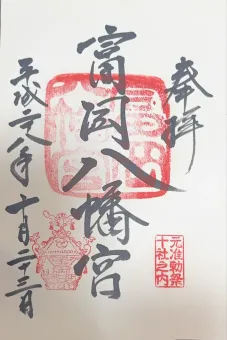 奉拝
元准勅祭
十社之内
富岡八幡宮
平成二八年十月二十三日